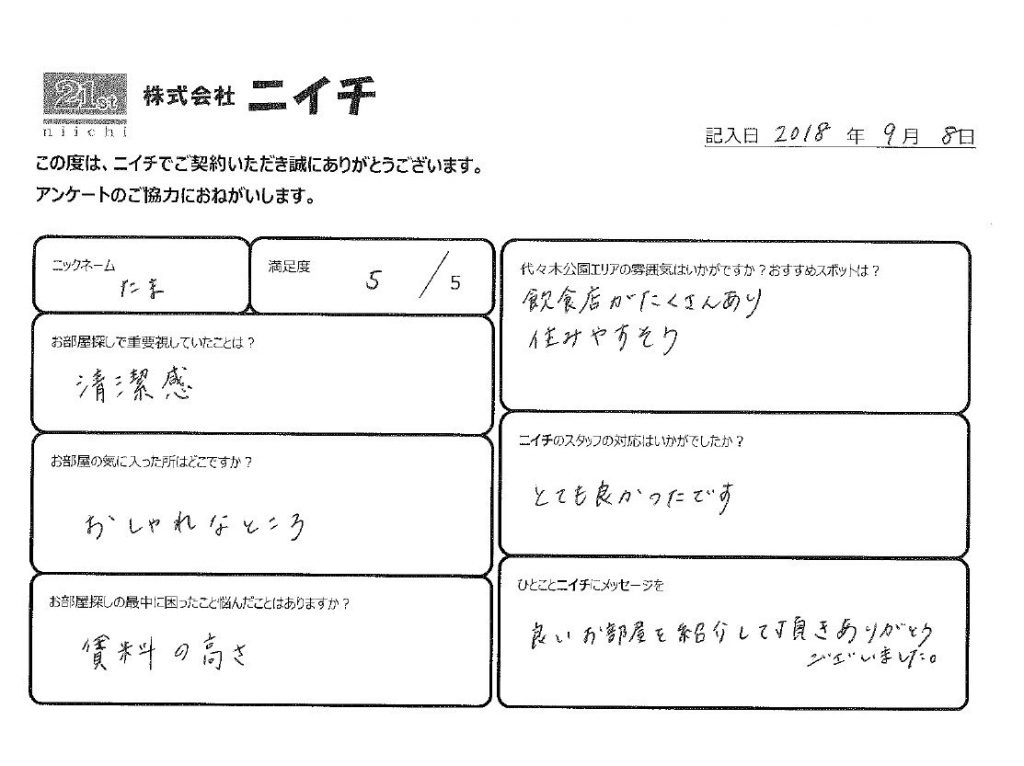 21st
niichi
株式会社 ニイチ
記入日 2018 年 9月 8日
この度は、ニイチでご契約いただき誠にありがとうございます。
アンケートのご協力におねがいします。
ニックネーム
たま
満足度
5 / 5
お部屋探しで重要視していたことは？
清潔感
お部屋の気に入った所はどこですか？
おしゃれなところ
お部屋探しの最中に困ったこと悩んだことはありますか？
賃料の高さ
代々木公園エリアの雰囲気はいかがですか？おすすめスポットは？
飲食店がたくさんあり
住みやすそう
ニイチのスタッフの対応はいかがでしたか？
とても良かったです
ひとことニイチにメッセージを
良いお部屋を紹介して頂きありがとう
ございました。